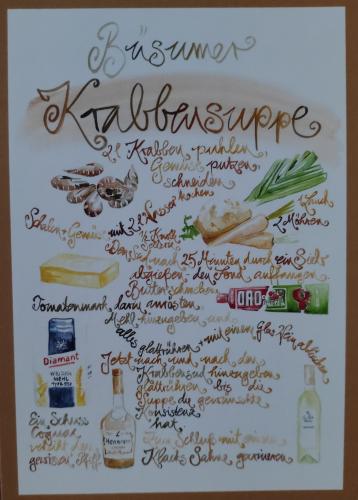 Büsumer
Krabbensuppe
2 l Krabben puhlen,
Gemüse putzen,
schneiden
Schalen + Gemüse mit 2 l Wasser kochen
1 Lauch
2 Möhren
½ Knolle
Sellerie
und nach 25 Minuten durch ein Sieb
abgießen, den Fond auffangen
Butter schmelzen
Tomatenmark darin anrösten
ORO
Mehl hinzugeben und
alles glattrühren + mit einem Glas Wein ablöschen
Diamant
WEIZEN
MEHL
Jetzt nach und nach den
Krabbensud hinzugeben
glattrühren bis die
Suppe die gewünschte
Konsistenz
hat.
Hennessy
Ein Schuss
Cognac
verleiht den
gewissen Pfiff
Zum Schluß mit einem
Klacks Sahne garnieren